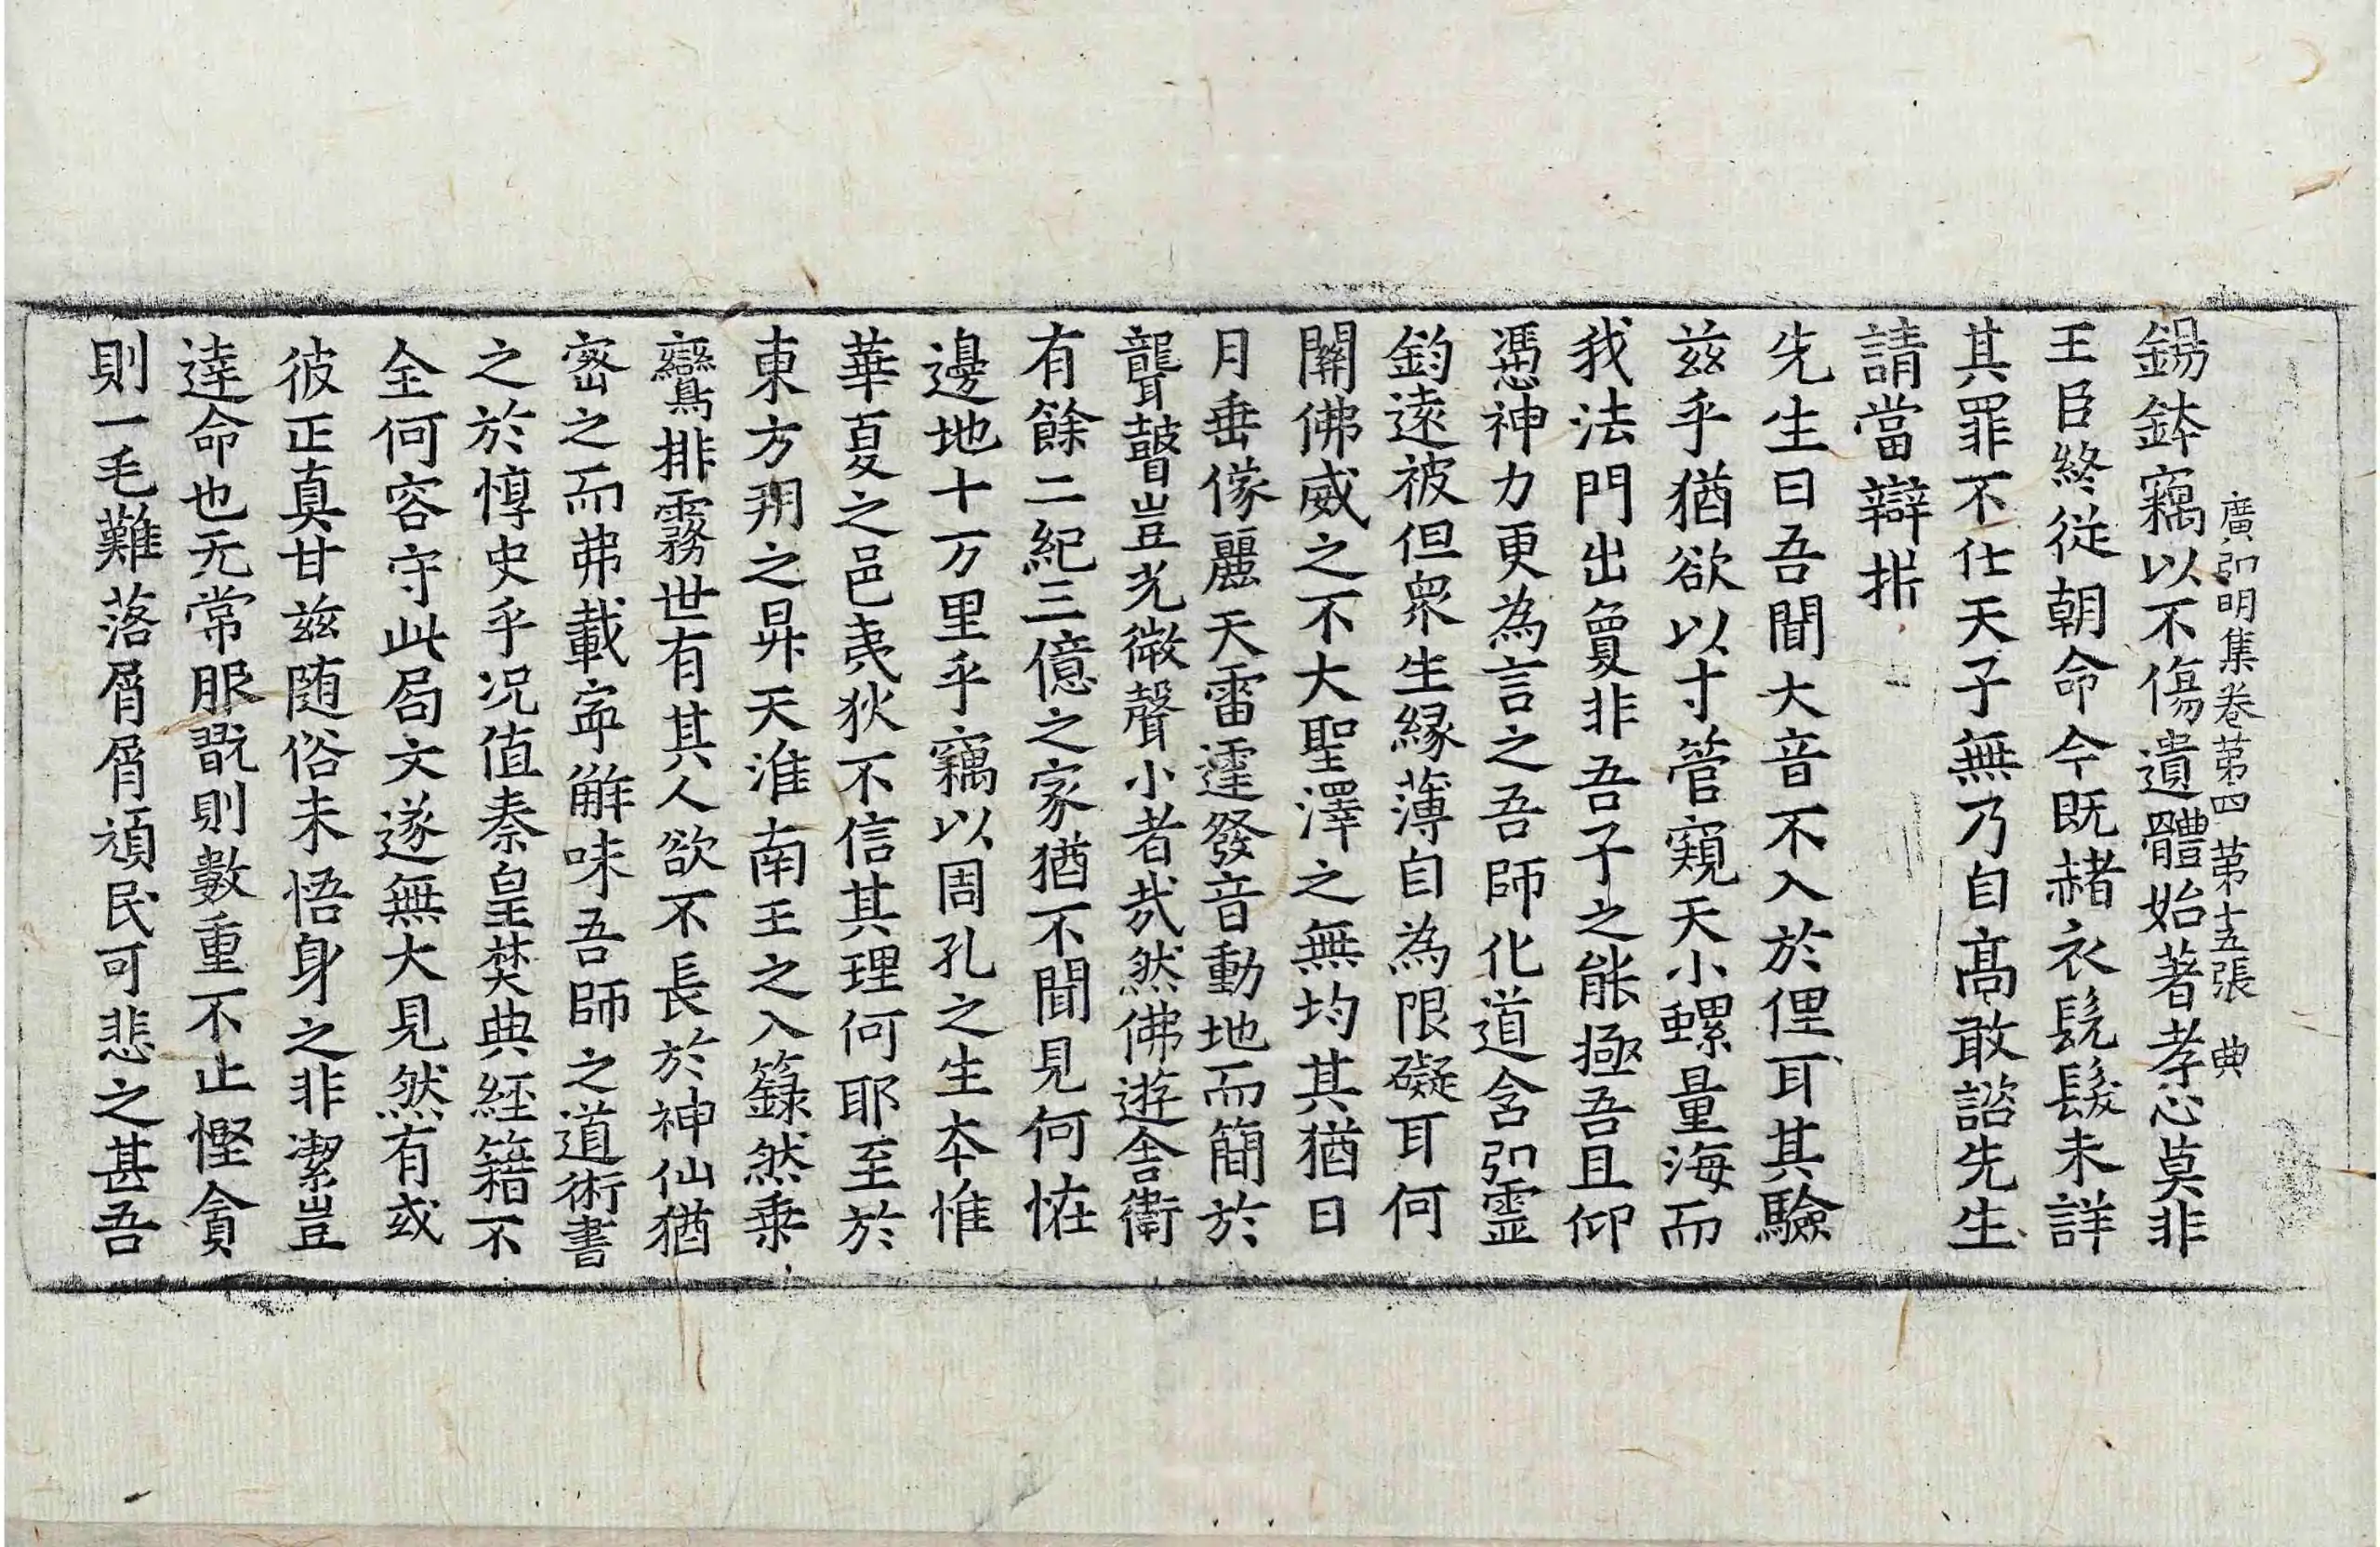 廣弘明集卷第四 第十五張 典
錫鉢竊以不傷遺體始著孝心莫非
王臣終從朝命今既赭衣髡髮未詳
其罪不仕天子無乃自高敢諮先生
請當辯析
先生曰吾聞大音不入於俚耳其驗
茲乎猶欲以寸管窺天小螺量海而
我法門出賣非吾子之能極吾且仰
憑神力更為言之吾師化道含弘靈
鈞遠被但衆生緣薄自為限礙耳何
關佛威之不大聖澤之無均其猶日
月垂像麗天雷霆發音動地而簡於
聾瞽豈光微聲小者哉然佛遊舍衛
有餘二紀三億之家猶不聞見何恠
邊地十万里乎竊以周孔之生本惟
華夏之邑夷狄不信其理何耶至於
東方朔之昇天淮南王之入籙然乗
鸞排霧世有其人欲不長於神仙猶
密之而弗載寧解味吾師之道術書
之於惇史乎況值秦皇焚典經籍不
全何容守此局文遂無大見然有或
彼正真甘茲随俗未悟身之非潔豈
達命也无常服翫則數重不止慳貪
則一毛難落屑屑頑民可悲之甚吾